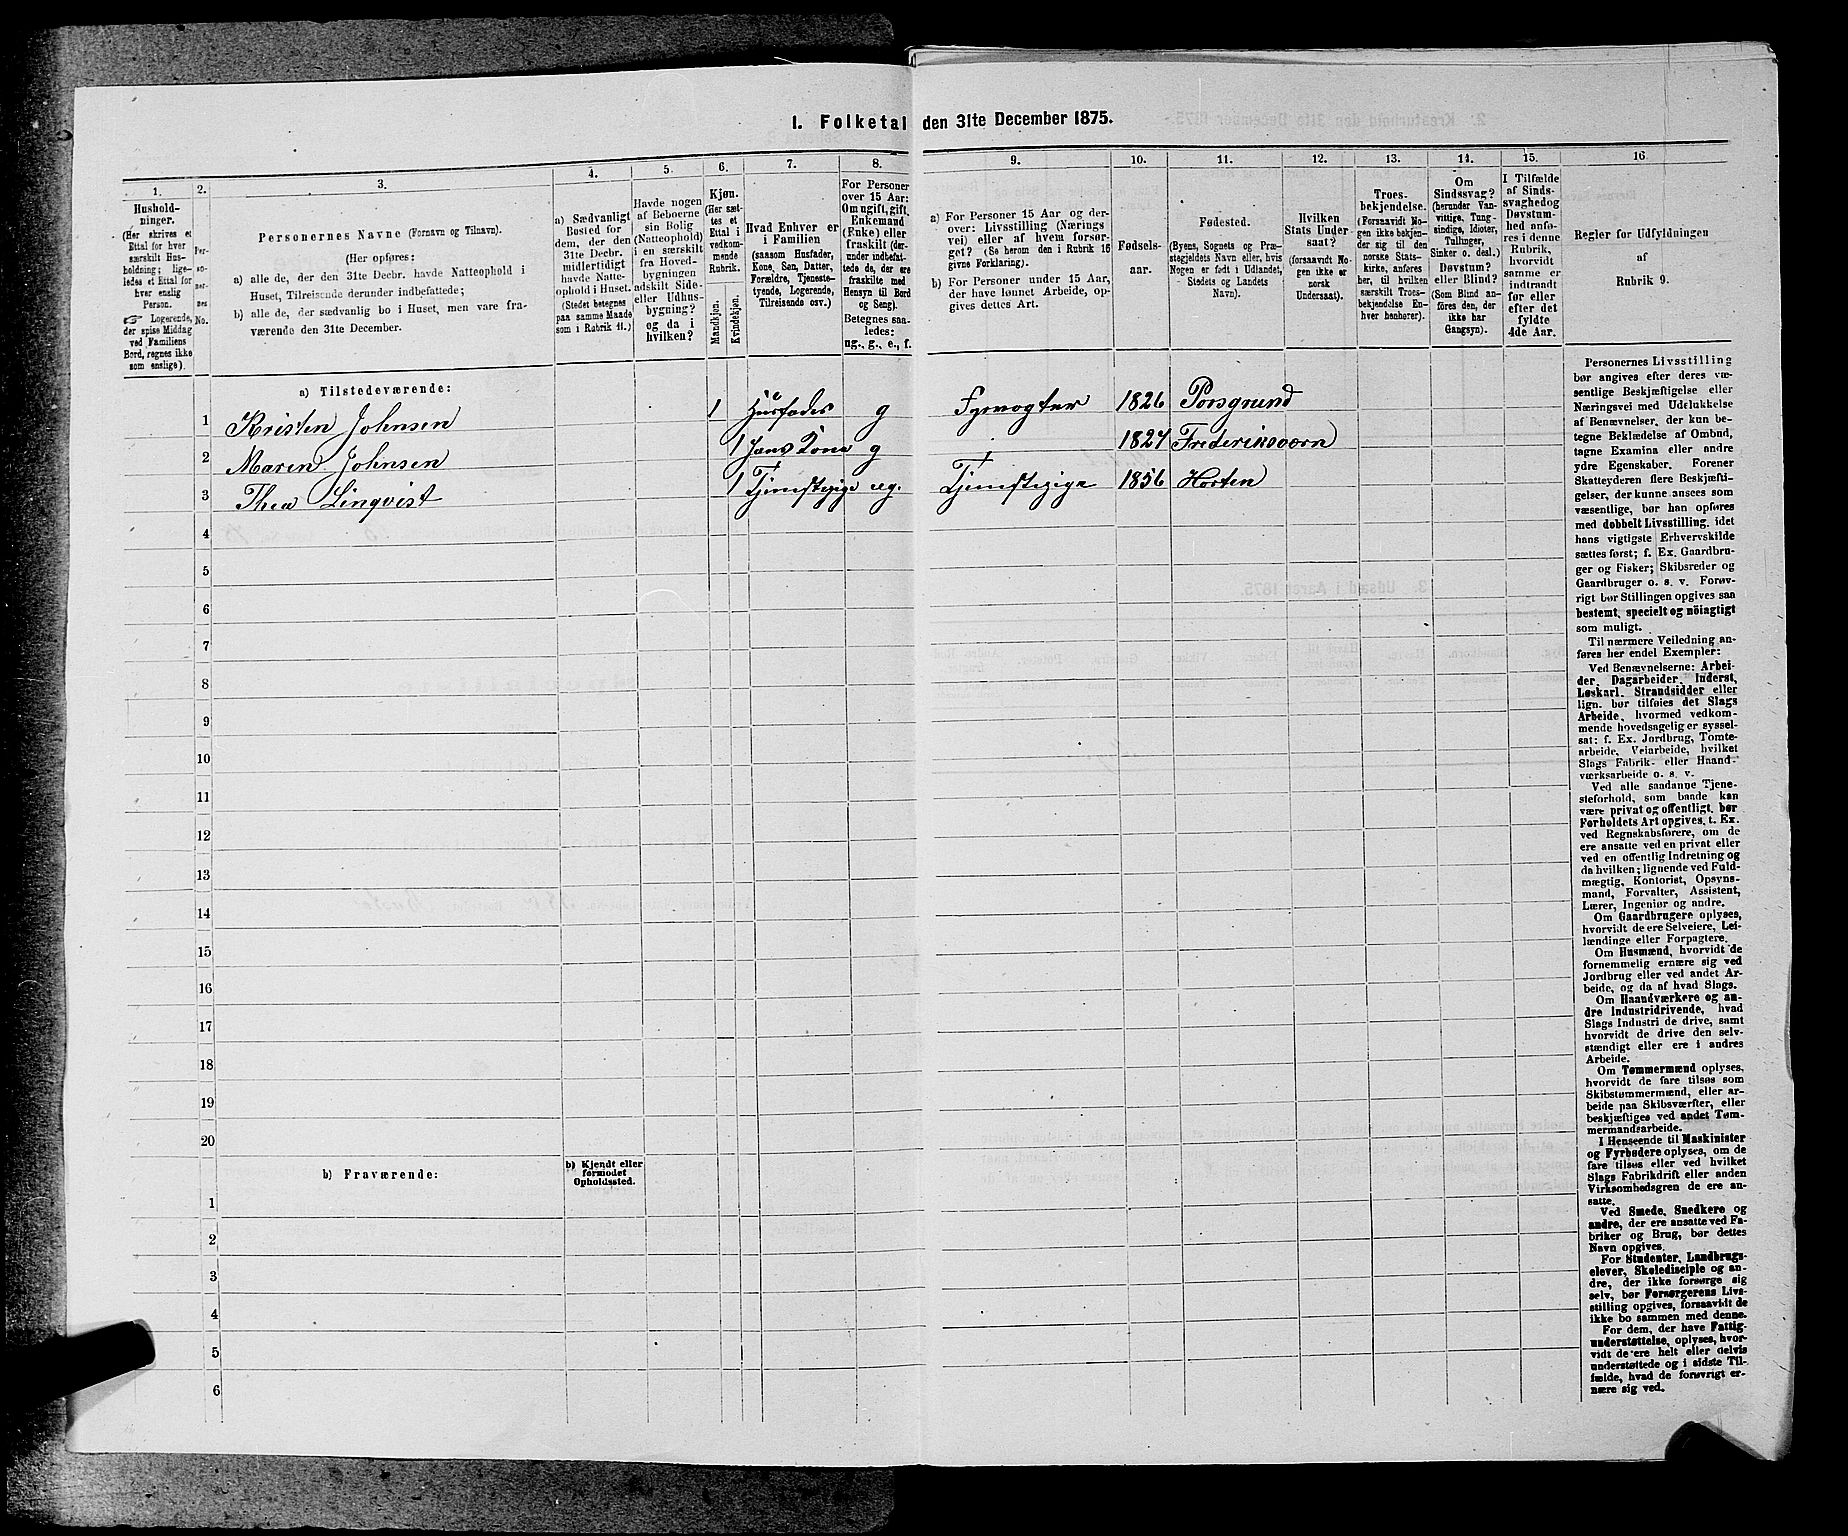 1. Folketal den 31te December 1875.
1.
Hushold-
ninger.
(Her skrives et
Ettal for hver
særskilt Hus-
holdning; lige-
ledes et Ettal for
hver enslig
Person.
☞ Logerende,
der spise Middag
ved Familiens
Bord, regnes ikke
som enslige).
2.
Per-
so-
ner-
nes
No.
3.
Personernes Navne (Fornavn og Tilnavn).
(Her opføres:
a) alle de, der den 31te Decbr. havde Natteophold i
Huset, Tilreisende derunder indbefattede;
b) alle de, der sædvanlig bo i Huset, men vare fra-
værende den 31te December.
4.
a) Sædvanligt
Bosted for
dem, der den
31te Decbr.
midlertidigt
havde Natte-
ophold i Huset.
(Stedet betegnes
paa samme Maade
som i Rubrik 11.)
5.
Havde nogen
af Beboerne
sin Bolig
(Natteophold)
i en særskilt
fra Hoved-
bygningen
adskilt Side-
eller Udhus-
bygning?
og da i
hvilken?
6.
Kjøn.
(Her sæt-
tes et
Ettal i
vedkom-
mende
Rubrik.
Mandkjøn.
Kvindekjøn.
7.
Hvad Enhver er
i Familien
(saasom Husfader,
Kone, Søn, Datter,
Forældre, Tjeneste-
tyende, Logerende,
Tilreisende osv.)
8.
For Personer
over 15 Aar:
Om ugift, gift,
Enkemand
(Enke) eller
fraskilt (der-
under indbefat-
tede de, der ere
fraskilte med
Hensyn til Bord
og Seng).
Betegnes saa-
ledes:
ug., g., e., f.
9.
a) For Personer 15 Aar og der-
over: Livsstilling (Nærings
vei) eller af hvem forsør-
get? (Se herom den i Rubrik 16
givne Forklaring).
b) For Personer under 15 Aar,
der have lønnet Arbeide, op-
gives dettes Art.
10.
Fødsels-
aar.
11.
Fødested.
(Byens, Sognets og Præ-
stegjeldets Navn eller, hvis
Nogen er født i Udlandet,
Stedets og Landets
Navn).
12.
Hvilken
Stats Under-
saat?
(forsaavidt No-
gen ikke er
norsk
Undersaat).
13.
Troes-
bekjendelse.
(Forsaavidt No-
gen ikke bekjen-
der sig til den
norske Stats-
kirke, anføres
her, til hvilken
særskilt Troes-
bekjendelse En-
hver henhører).
14.
Om
Sindssvag?
(herunder Van-
vittige, Tung-
sindige, Idioter,
Tullinger,
Sinker o. desl.)
Døvstum?
eller Blind?
(Som Blind an-
føres den, der
ikke har
Gangsyn).
15.
I Tilfælde
af Sinds-
svaghed og
Døvstum-
hed anfø-
res i denne
Rubrik,
hvorvidt
samme er
indtraadt
før eller
efter det
fyldte
4de Aar.
16
Regler for Udfyldningen
af
Rubrik 9.
a) Tilstedeværende:
1 Kristen Johnsen 1 Husfader g Fyrvogter 1826 Porsgrund
2 Maren Johnsen 1 Hans Kone g 1827 Frederiksværn
3 Thea Linqvist 1 Tjenestepige ug. Tjenestepige 1856 Horten
4
5
6
7
8
9
10
11
12
13
14
15
16
17
18
19
20
b) Fraværende:
b) Kjendt eller
formodet
Opholdssted.
1
2
3
4
5
6
Personernes Livsstilling
bør angives efter deres væ-
sentlige Beskjæftigelse eller
Næringsvei med Udelukkelse
af Benævnelser, der kun be-
tegne Beklædelse af Ombud,
tagne Examina eller andre
ydre Egenskaber. Forener
Skatteyderen flere Beskjæfti-
gelser, der kunne ansees som
væsentlige, bør han opføres
med dobbelt Livsstilling, idet
hans vigtigste Erhvervskilde
sættes først; f. Ex. Gaardbru-
ger og Fisker; Skibsreder og
Gaardbruger o. s. v. Forøv-
rigt bør Stillingen opgives saa
bestemt, specielt og nöiagtigt
som muligt.
Til nærmere Veiledning an-
føres her endel Exempler:
Ved Benævnelserne: Arbei-
der, Dagarbeider, Inderst,
Løskarl, Strandsidder eller
lign. bør tilføies det Slags
Arbeide, hvormed vedkom-
mende hovedsagelig er syssel-
sat: f. Ex. Jordbrug, Tomte-
arbeide, Veiarbeide, hvilket
Slags Fabrik- eller Haand-
værksarbeide o. s. v.
Ved alle saadanne Tjene-
steforhold, som baade kan
være privat og offentligt, bør
Forholdets Art opgives, t. Ex.
ved Regnskabsførere, om de
ere ansatte ved en privat eller
ved en offentlig Indretning og
da hvilken; lignende ved Fuld-
mægtig, Kontorist, Opsyns-
mand, Forvalter, Assistent,
Lærer, Ingeniør og andre.
Om Gaardbrugere oplyses,
hvorvidt de ere Selveiere, Lei-
lændinge eller Forpagtere.
Om Husmænd, hvorvidt de
fornemmelig ernære sig ved
Jordbrug eller ved andet Ar-
beide, og da af hvad Slags.
Om Haandværkere og an-
dre Industridrivende, hvad
Slags Industri de drive, samt
hvorvidt de drive den selv-
stændigt eller ere i andres
Arbeide.
Om Tømmermænd oplyses,
hvorvidt de fare tilsøs som
Skibstømmermænd, eller ar-
beide paa Skibsværfter, eller
beskjæftiges ved andet Tøm-
mermandsarbeide.
I Henseende til Maskinister
og Fyrbødere oplyses, om de
fare tilsøs eller ved hvilket
Slags Fabrikdrift eller anden
Virksomhedsgren de ere an-
satte.
Ved Smede, Snedkere og
andre, der ere ansatte ved Fa-
briker og Brug, bør dettes
Navn opgives.
For Studenter, Landbrugs-
elever, Skoledisciple og an-
dre, der ikke forsørge sig
selv, bør Forsørgerens Livs-
stilling opgives, forsaavidt de
ikke bo sammen med denne.
For dem, der have Fattig-
understøttelse, oplyses, hvor-
vidt de ere helt eller delvis
understøttede og i sidste Til-
fælde, hvad de forøvrigt er-
nære sig ved.